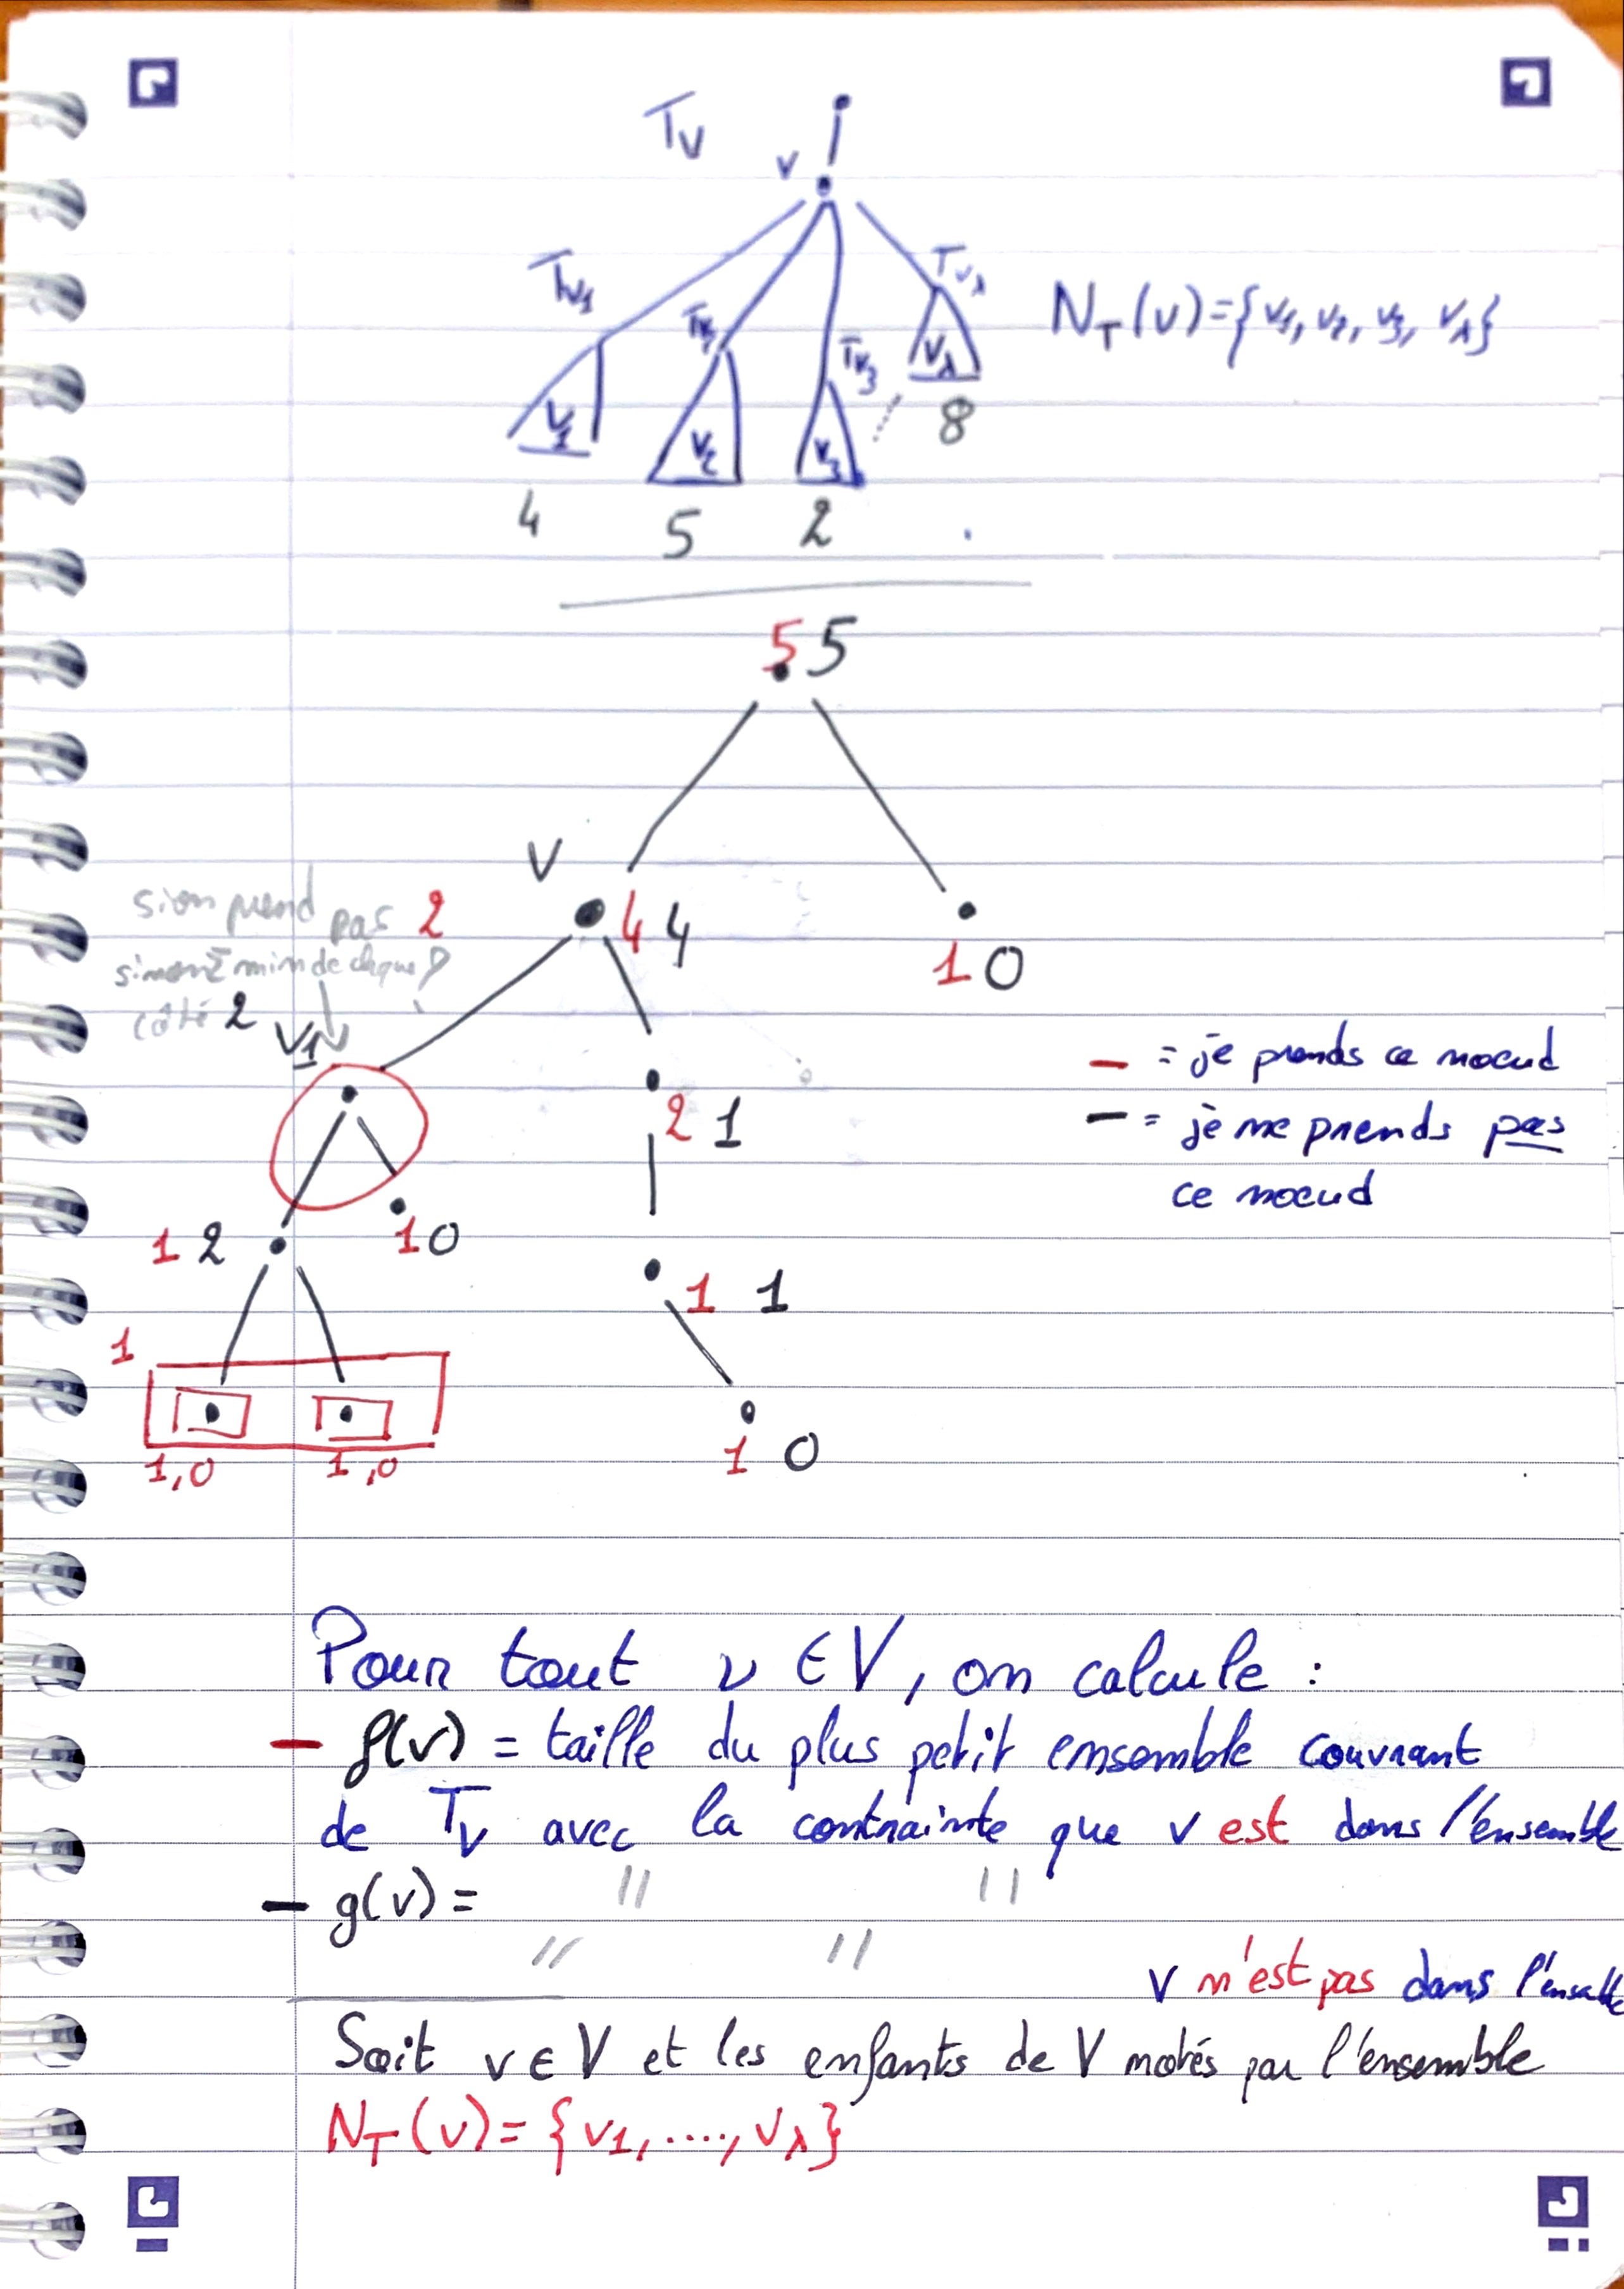 Tv
v
Tv1
Tv2
Tv3
Tvλ
NT(v)={v1, v2, v3, vλ}
v1
v2
v3
vλ
8
4
5
2
5 5
V
si on prend pas 2
sinon = min de chaque
côté 2
4 4
1 0
V1
2 1
- = je prends ce noeud
- = je ne prends pas
ce noeud
1 2
1 0
1 1
1
1,0
1,0
1 0
Pour tout v ∈ V, on calcule :
- f(v) = taille du plus petit ensemble couvrant
de Tv avec la contrainte que v est dans l'ensemble
- g(v) = // //
// //
v n'est pas dans l'ensemble
Soit v ∈ V et les enfants de V notés par l'ensemble
NT(v) = {v1, ...., vλ}